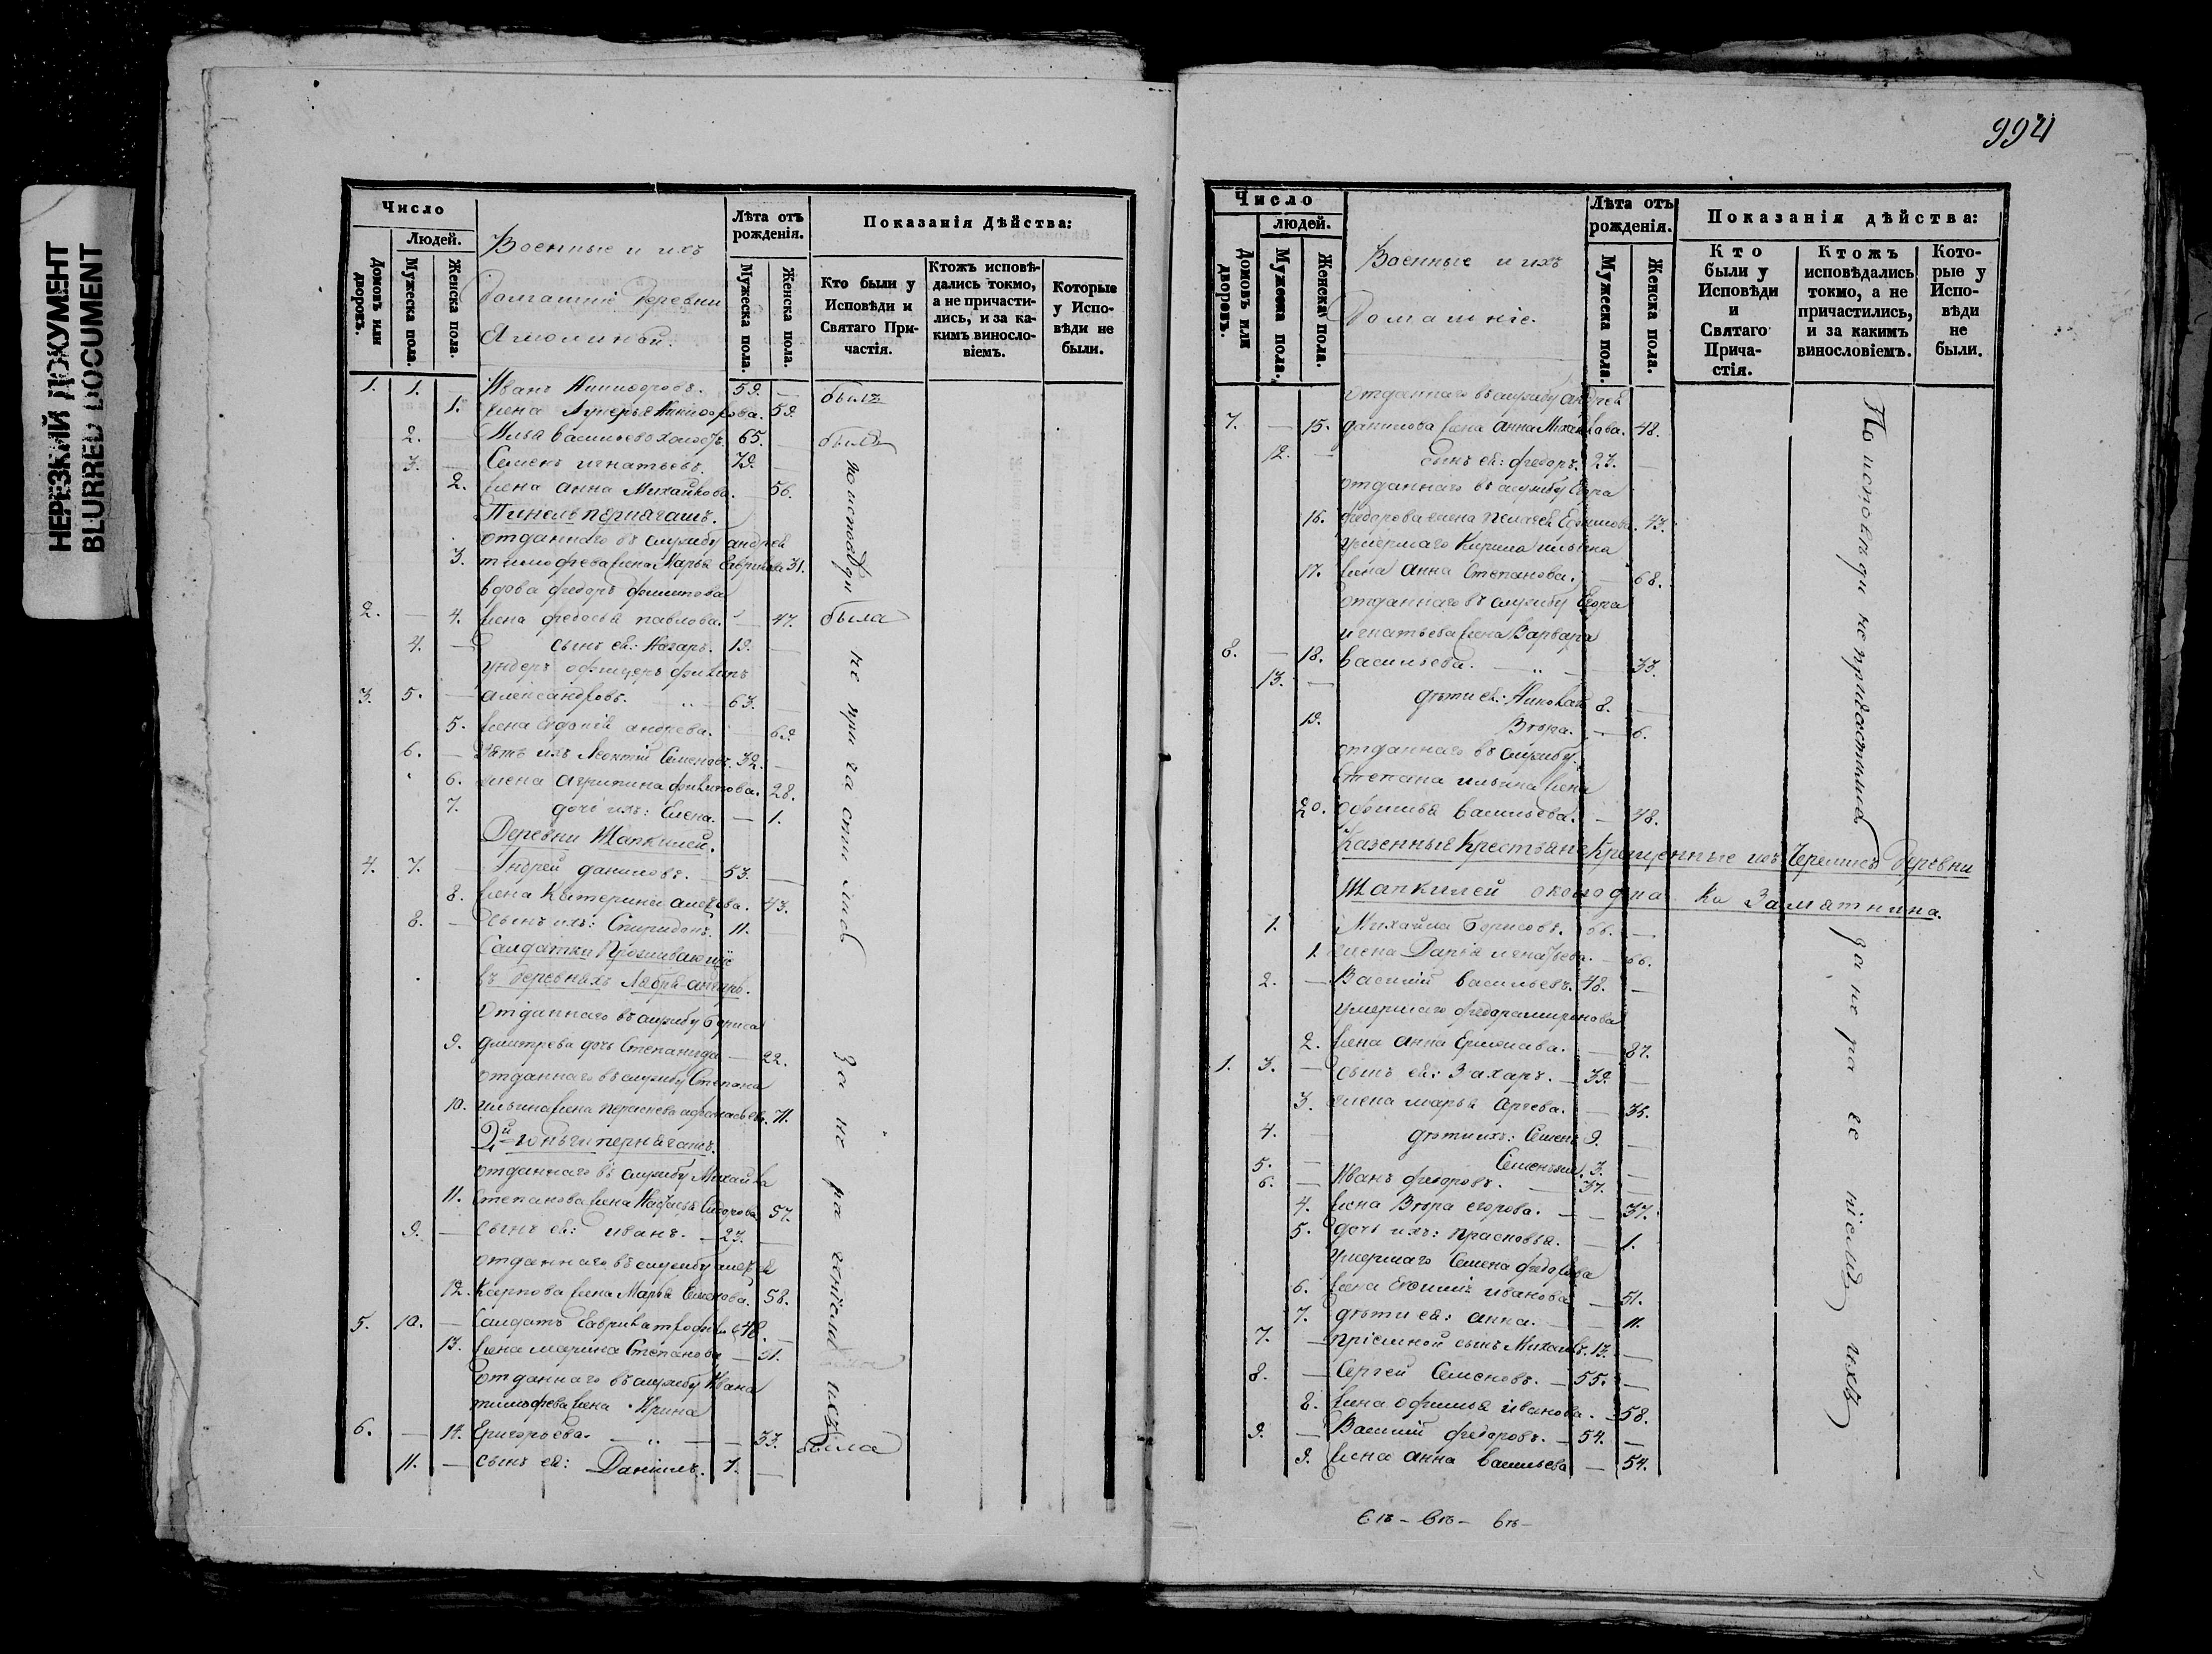 НЕРЕЗКИЙ ДОКУМЕНТ
BLURRED DOCUMENT
Число
Людей.
Домовъ или дворовъ.
Мужеска пола.
Женска пола.
Военные и ихъ
Домашніе деревни
Лѣта отъ рожденія.
Мужеска пола.
Женска пола.
Показанія Дѣйства:
Кто были у Исповѣди и Святаго Причастія.
Ктожъ исповѣдались токмо, а не причастились, и за какимъ винословіемъ.
Которые у Исповѣди не были.
1. 1. — Иванъ Никифоровъ. 59. — былъ
1. жена Лукерья Никифорова. 59.
2. — Илья Васильевъ 65. — былъ
3. — Семенъ Игнатьевъ. 79. —
2. жена Анна Михайлова. — 56.
отданнаго въ службу Андрея
3. Тимофеева жена Марья Гаврилова 31.
вдова Федоръ Филипова
2. — 4. жена Федосья Павлова. — 47. была
4. — сынъ ея: Назаръ. 19. —
Ундеръ офицеръ Филипъ
3. 5. — Александровъ. 63. —
5. жена Андреева. — 69.
6. — Зять ихъ Леонтий Семеновъ. 32. —
6. жена Агрипина Филипова. 28.
7. дочь ихъ: Елена. — 1.
Деревни Шапкилей.
4. 7. — Андрей Даниловъ. 53. —
8. жена Катерина 43.
8. — сынъ ихъ: Спиридонъ. 11. —
Салдатки проживающіе
въ деревняхъ
отданнаго въ службу Бориса
9. Дмитрева дочь Степанида — 22.
отданнаго въ службу Степана
10. Ильина жена 71.
отданнаго въ службу Михайла
11. Степанова жена Настасья Сидорова 57.
9. — сынъ ея: Иванъ. 23. —
отданнаго въ службу
12. Карпова жена Марья Семенова. 58.
5. 10. — Салдатъ Гаврила 48. —
13. жена Марина Степанова — 51.
отданнаго въ службу Ивана
Тимофеева жена Ирина
6. — 14. Григорьева. — 33. была
11. — сынъ ея: Данилъ. 7. —
по исповѣди не причастились за не ра ченіемъ ихъ
994
Число
людей.
Домовъ или дворовъ.
Мужеска пола.
Женска пола.
Военные и ихъ
Домашніе.
Лѣта отъ рожденія.
Мужеска пола.
Женска пола.
Показанія дѣйства:
Кто были у Исповѣди и Святаго Причастія.
Ктожъ исповѣдались токмо, а не причастились, и за какимъ винословіемъ.
Которые у Исповѣди не были.
отданнаго въ службу Андрея
7. — 15. Данилова жена Анна Михайлова. 48.
12. — сынъ ея: Федоръ. 23. —
отданнаго въ службу Егора
16. Федорова жена Пелагея 43.
умершаго Кирила Ильина
17. жена Анна Степанова. — 68.
отданнаго въ службу Егора
Игнатьева жена Варвара
8. — 18. Васильева. — 33.
13. — дѣти ея: Николай 8. —
19. Вѣра. — 6.
отданнаго въ службу
Степана Ильина жена
20. Офимья Васильева. — 48.
Казенные Крестьяне Крещенные изъ Черемисъ Деревни
Шапкилей околодка Ка Заматнина.
1. Михайла Борисовъ. 66. —
1. жена Дарья Игнатьева. — 66.
2. — Василий Васильевъ. 48. —
умершаго Федора миронова
2. жена Анна — 87.
1. 3. — сынъ ея: Захаръ. 39. —
3. жена Марья Сергева. — 35.
4. — дѣти ихъ: Семенъ 9. —
5. — 3. —
6. — Иванъ Федоровъ. — 37. —
4. жена Вѣра Егорова. — 37.
5. дочь ихъ: Прасковья. — 1.
умершаго Семена
6. жена Иванова — 51.
7. дѣти ея: Анна. — 11.
7. — пріемной сынъ Михаилъ. 13. —
8. — Сергей Семеновъ. — 55. —
8. жена Офимья Иванова. — 58.
9. — Василий Федоровъ. — 54. —
9. жена Анна Васильева — 54.
По исповѣди не причастились за не ра че ніемъ ихъ